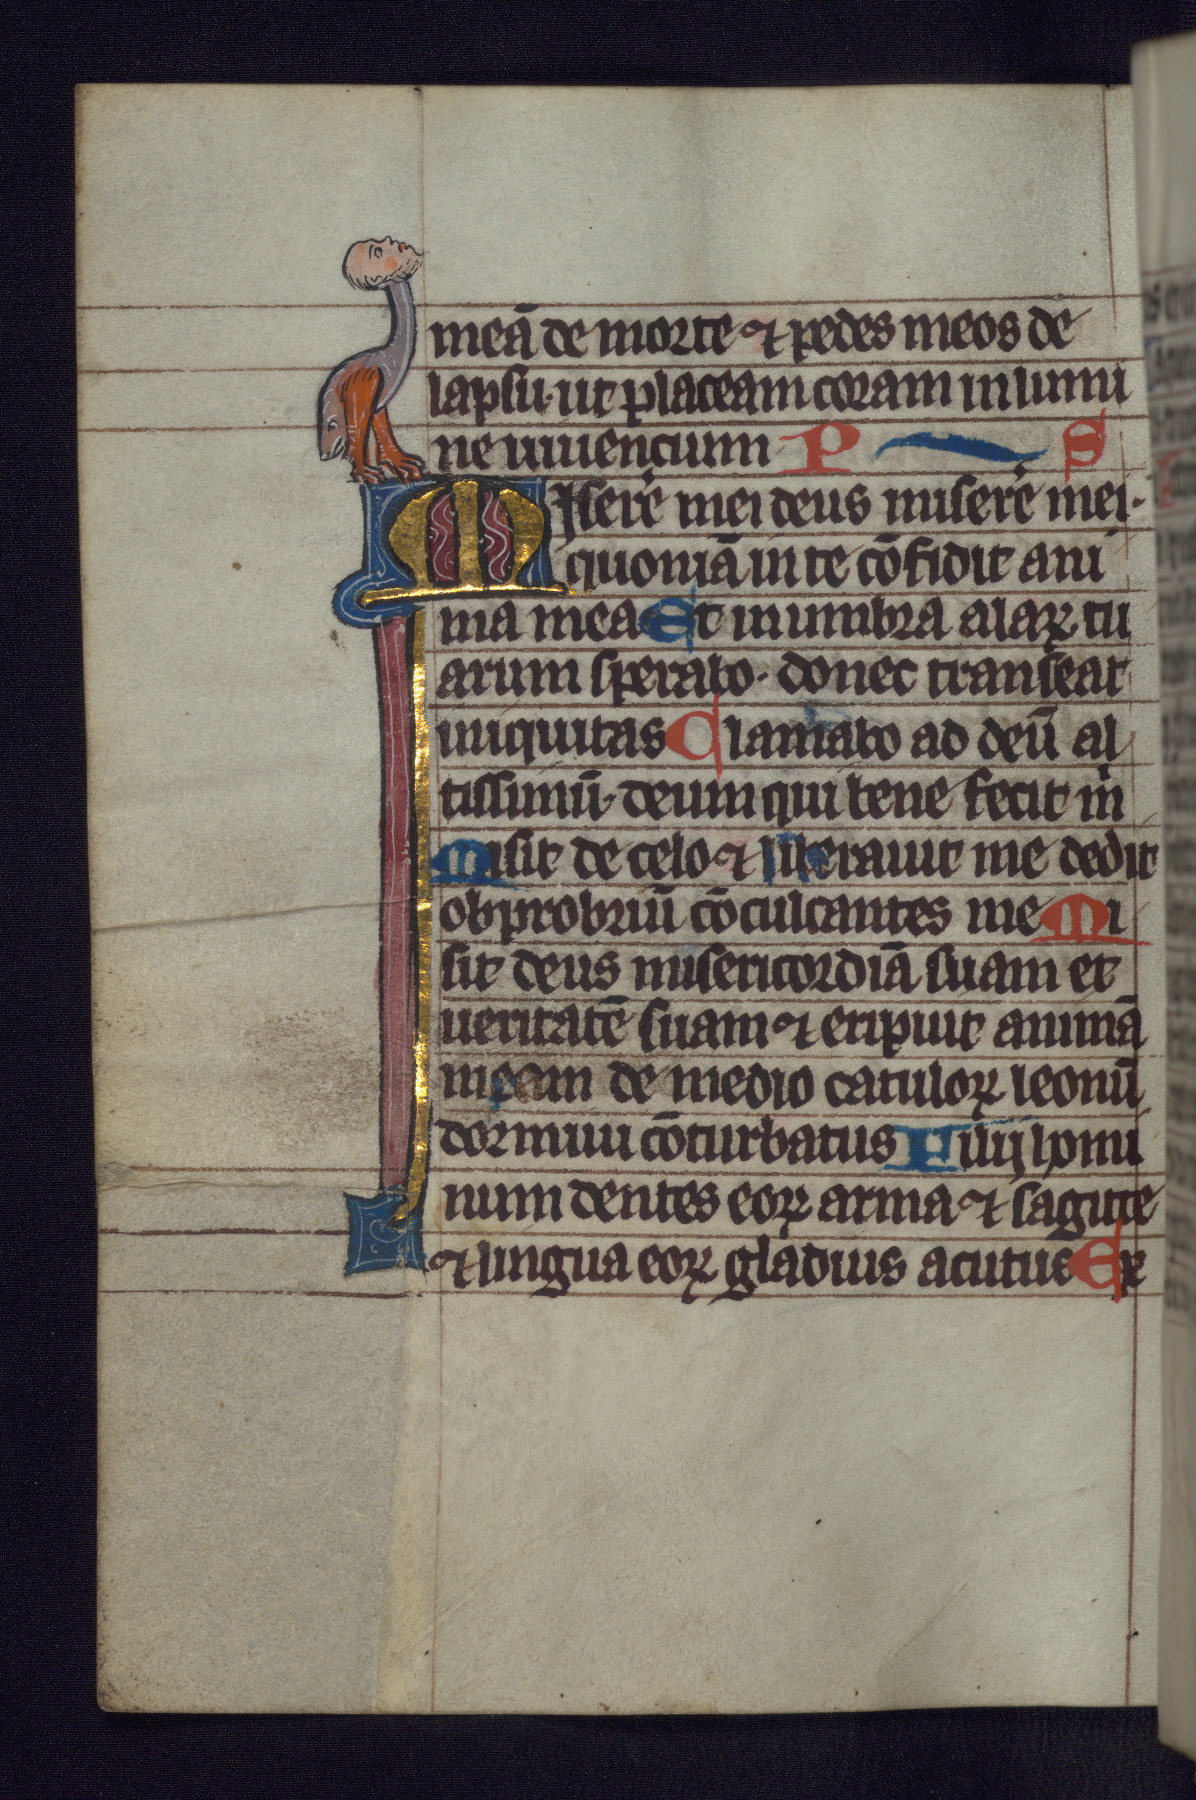 meā de morte ⁊ pedes meos de
lapsu· ut placeam coram in lumi
ne uiuencium P S
MIsere᷑ mei deus misere᷑ mei·
quoniā in te cōfidit ani
ma mea Et in umbra alaꝝ tu
arum sperabo· donec transeat
iniquitas Clamabo ad deū al
tissimū· deum qui bene fecit m̓
Misit de celo ⁊ liberauit me dedit
obprobriū cōculcantes me Mi
sit deus misericordiā suam et
ueritatē suam ⁊ eripuit animā
meam de medio catuloꝝ leonū
dormiui cōturbatus Filij homi
num dentes eoꝝ arma ⁊ sagitte
⁊ lingua eoꝝ gladius acutus Ex